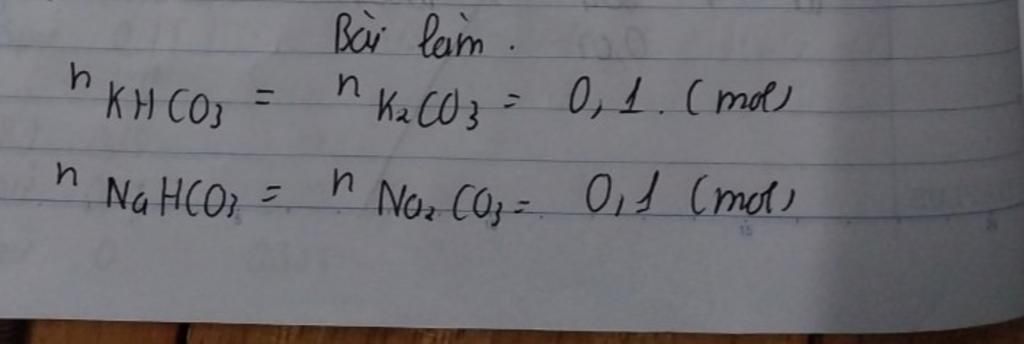 Bài làm.
n KHCO3 = n K2CO3 = 0,1. (mol)
n NaHCO3 = n Na2CO3 = 0,1 (mol)